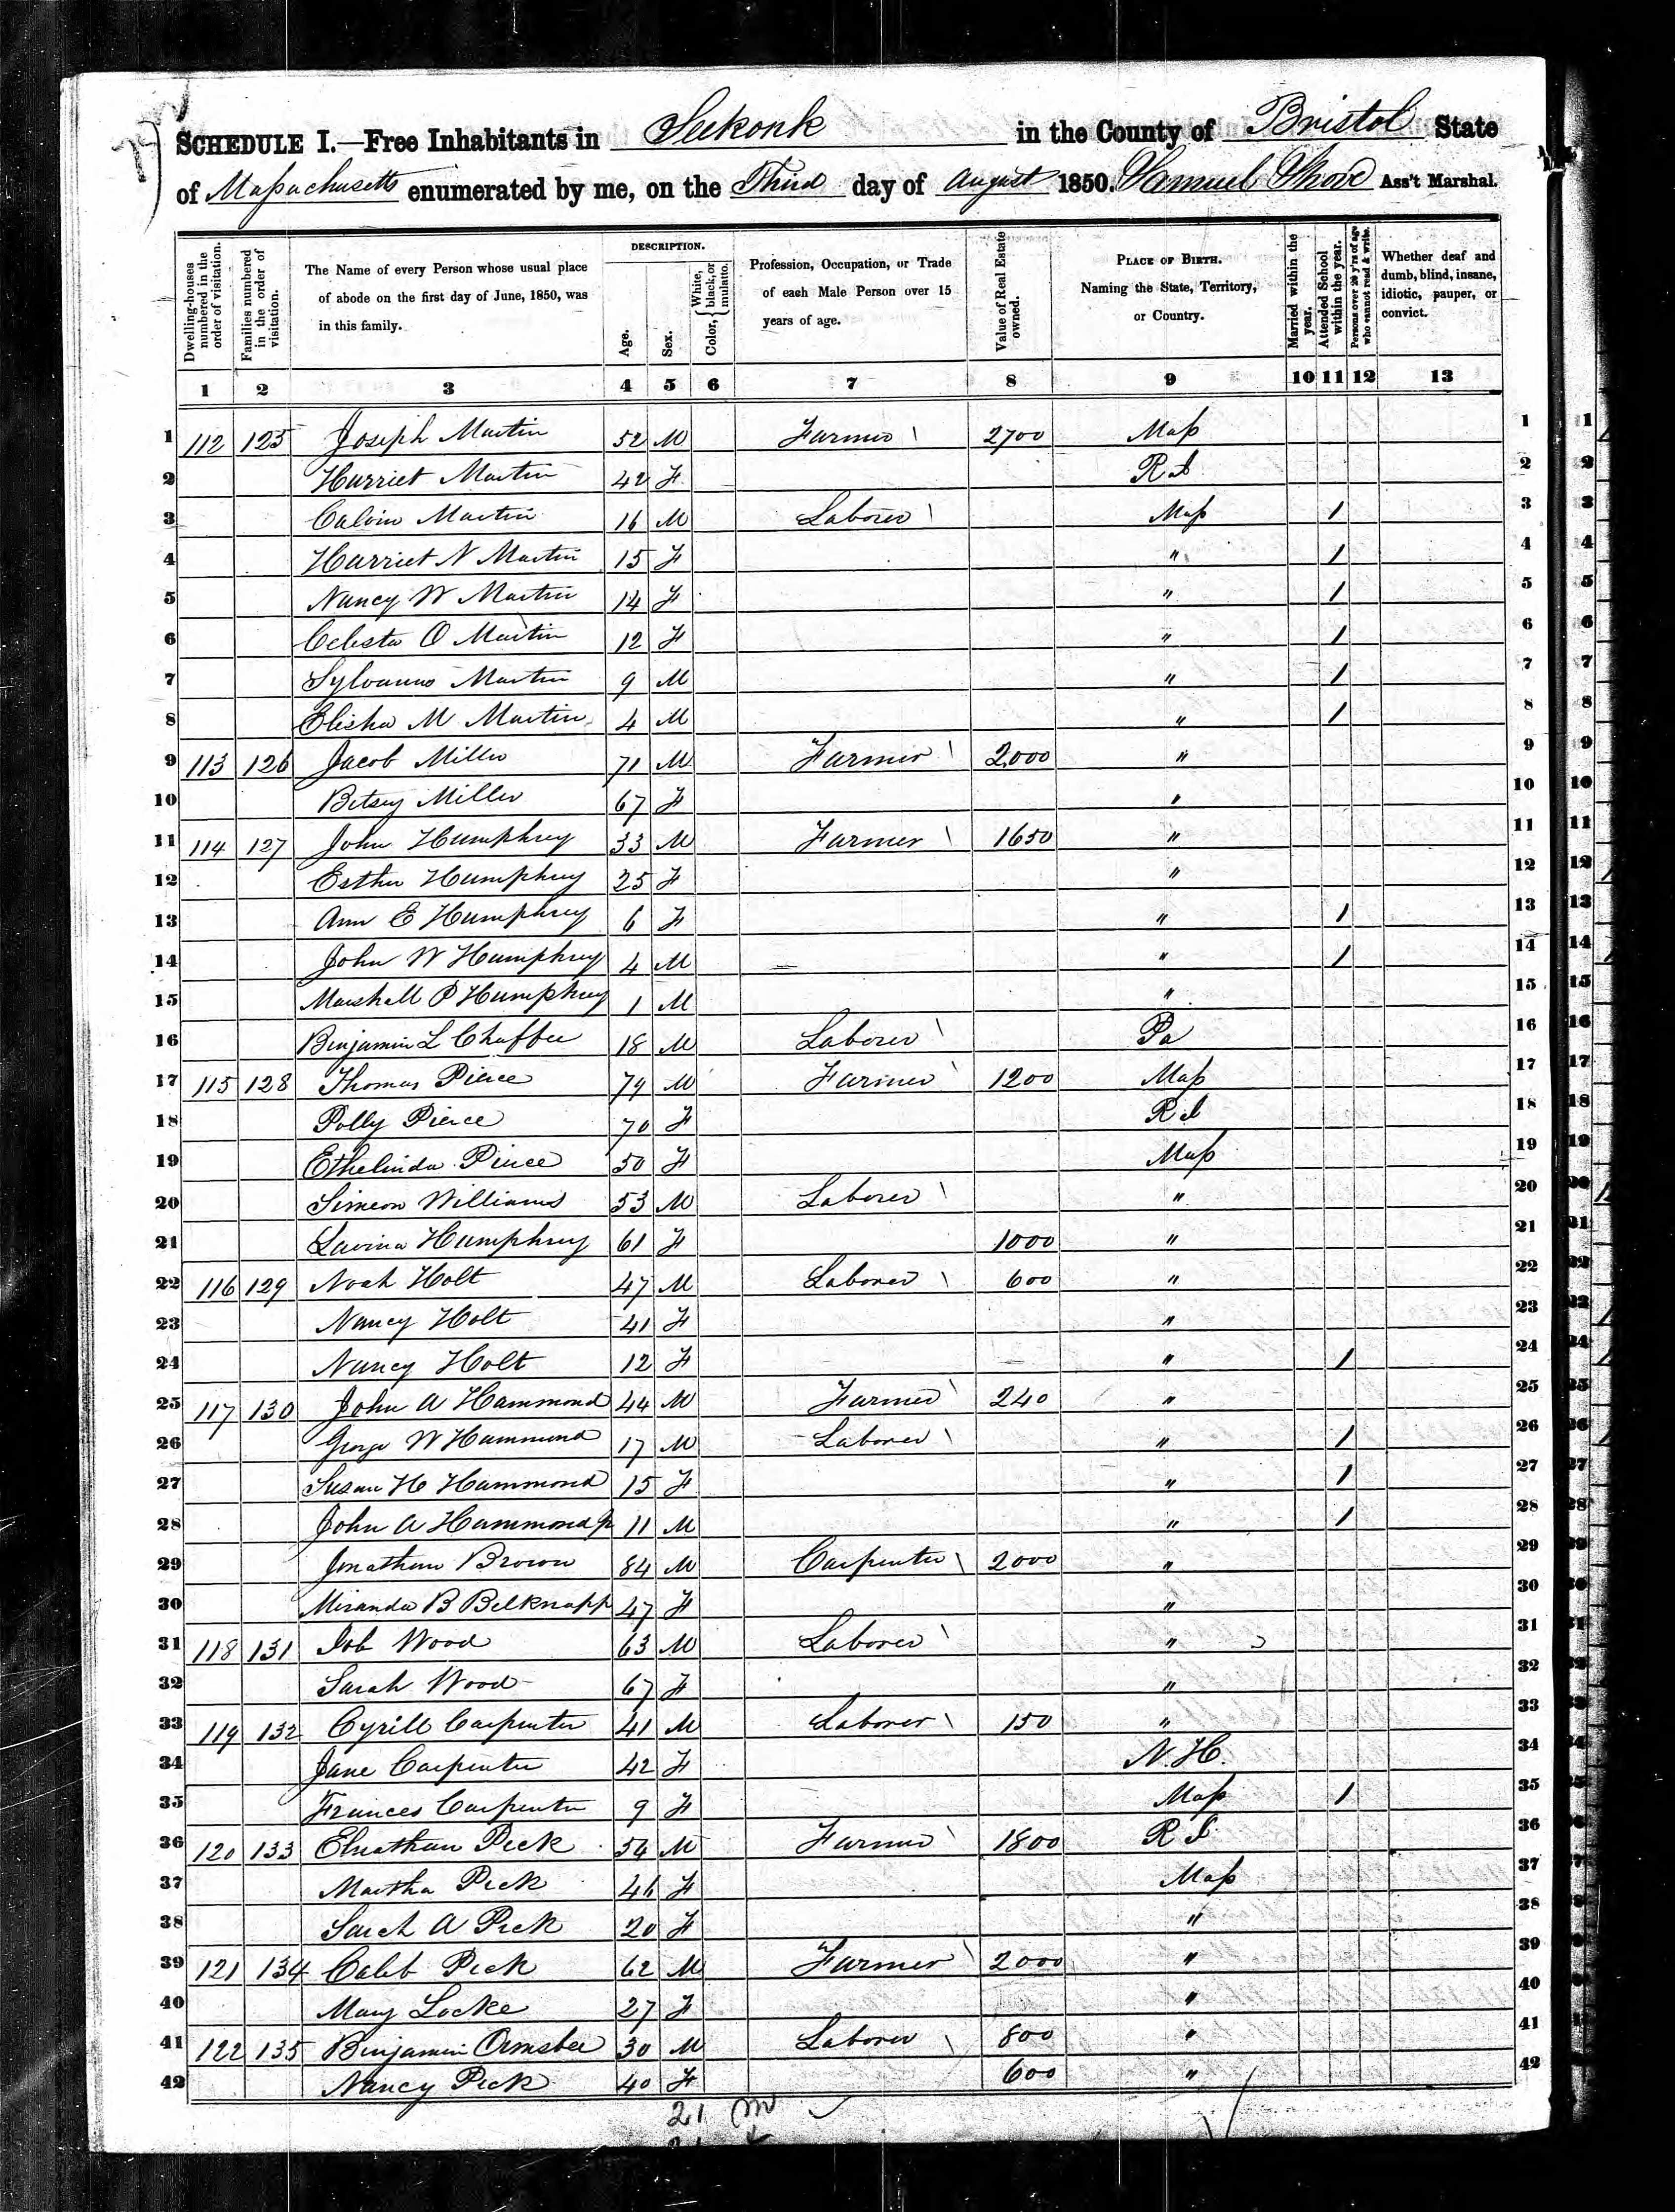 SCHEDULE I.—Free Inhabitants in Seekonk in the County of Bristol State
of Massachusetts enumerated by me, on the Third day of August 1850. Samuel Shove Ass't Marshal.
Dwelling-houses numbered in the order of visitation.
Families numbered in the order of visitation.
The Name of every Person whose usual place of abode on the first day of June, 1850, was in this family.
DESCRIPTION.
Age.
Sex.
Color, { White, black, or mulatto.
Profession, Occupation, or Trade of each Male Person over 15 years of age.
Value of Real Estate owned.
PLACE OF BIRTH. Naming the State, Territory, or Country.
Married within the year.
Attended School within the year.
Persons over 20 y'rs of age who cannot read & write.
Whether deaf and dumb, blind, insane, idiotic, pauper, or convict.
1 2 3 4 5 6 7 8 9 10 11 12 13
1 112 125 Joseph Martin 52 M Farmer 2700 Mass 1
2 Harriet Martin 42 F R I 2
3 Calvin Martin 16 M Laborer Mass / 3
4 Harriet N Martin 15 F " / 4
5 Nancy W Martin 14 F " / 5
6 Celesta O Martin 12 F " / 6
7 Sylvanus Martin 9 M " / 7
8 Elisha M Martin 4 M " / 8
9 113 126 Jacob Miller 71 M Farmer 2000 " 9
10 Betsey Miller 67 F " 10
11 114 127 John Humphrey 33 M Farmer 1650 " 11
12 Esther Humphrey 25 F " 12
13 Ann E Humphrey 6 F " / 13
14 John W Humphrey 4 M " / 14
15 Marshall P Humphrey 1 M " 15
16 Benjamin L Chaffee 18 M Laborer Pa 16
17 115 128 Thomas Pierce 79 M Farmer 1200 Mass 17
18 Polly Pierce 70 F R I 18
19 Ethelinda Pierce 50 F Mass 19
20 Simeon Williams 53 M Laborer " 20
21 Lavina Humphrey 61 F 1000 " 21
22 116 129 Noah Holt 47 M Laborer 600 " 22
23 Nancy Holt 41 F " 23
24 Nancy Holt 12 F " / 24
25 117 130 John A Hammond 44 M Farmer 240 " 25
26 George W Hammond 17 M Laborer " / 26
27 Susan H Hammond 15 F " / 27
28 John A Hammond Jr 11 M " / 28
29 Jonathan Brown 84 M Carpenter 2000 " 29
30 Miranda B Belknapp 47 F " 30
31 118 131 Job Wood 63 M Laborer " 31
32 Sarah Wood 67 F " 32
33 119 132 Cyrill Carpenter 41 M Laborer 150 " 33
34 Jane Carpenter 42 F N. H. 34
35 Frances Carpenter 9 F Mass / 35
36 120 133 Elnathan Peck 54 M Farmer 1800 R I 36
37 Martha Peck 46 F Mass 37
38 Sarah A Peck 20 F " 38
39 121 134 Caleb Peck 62 M Farmer 2000 " 39
40 Mary Locke 27 F " 40
41 122 135 Benjamin Ormsbee 30 M Laborer 800 " 41
42 Nancy Peck 40 F 600 " 42
21 m